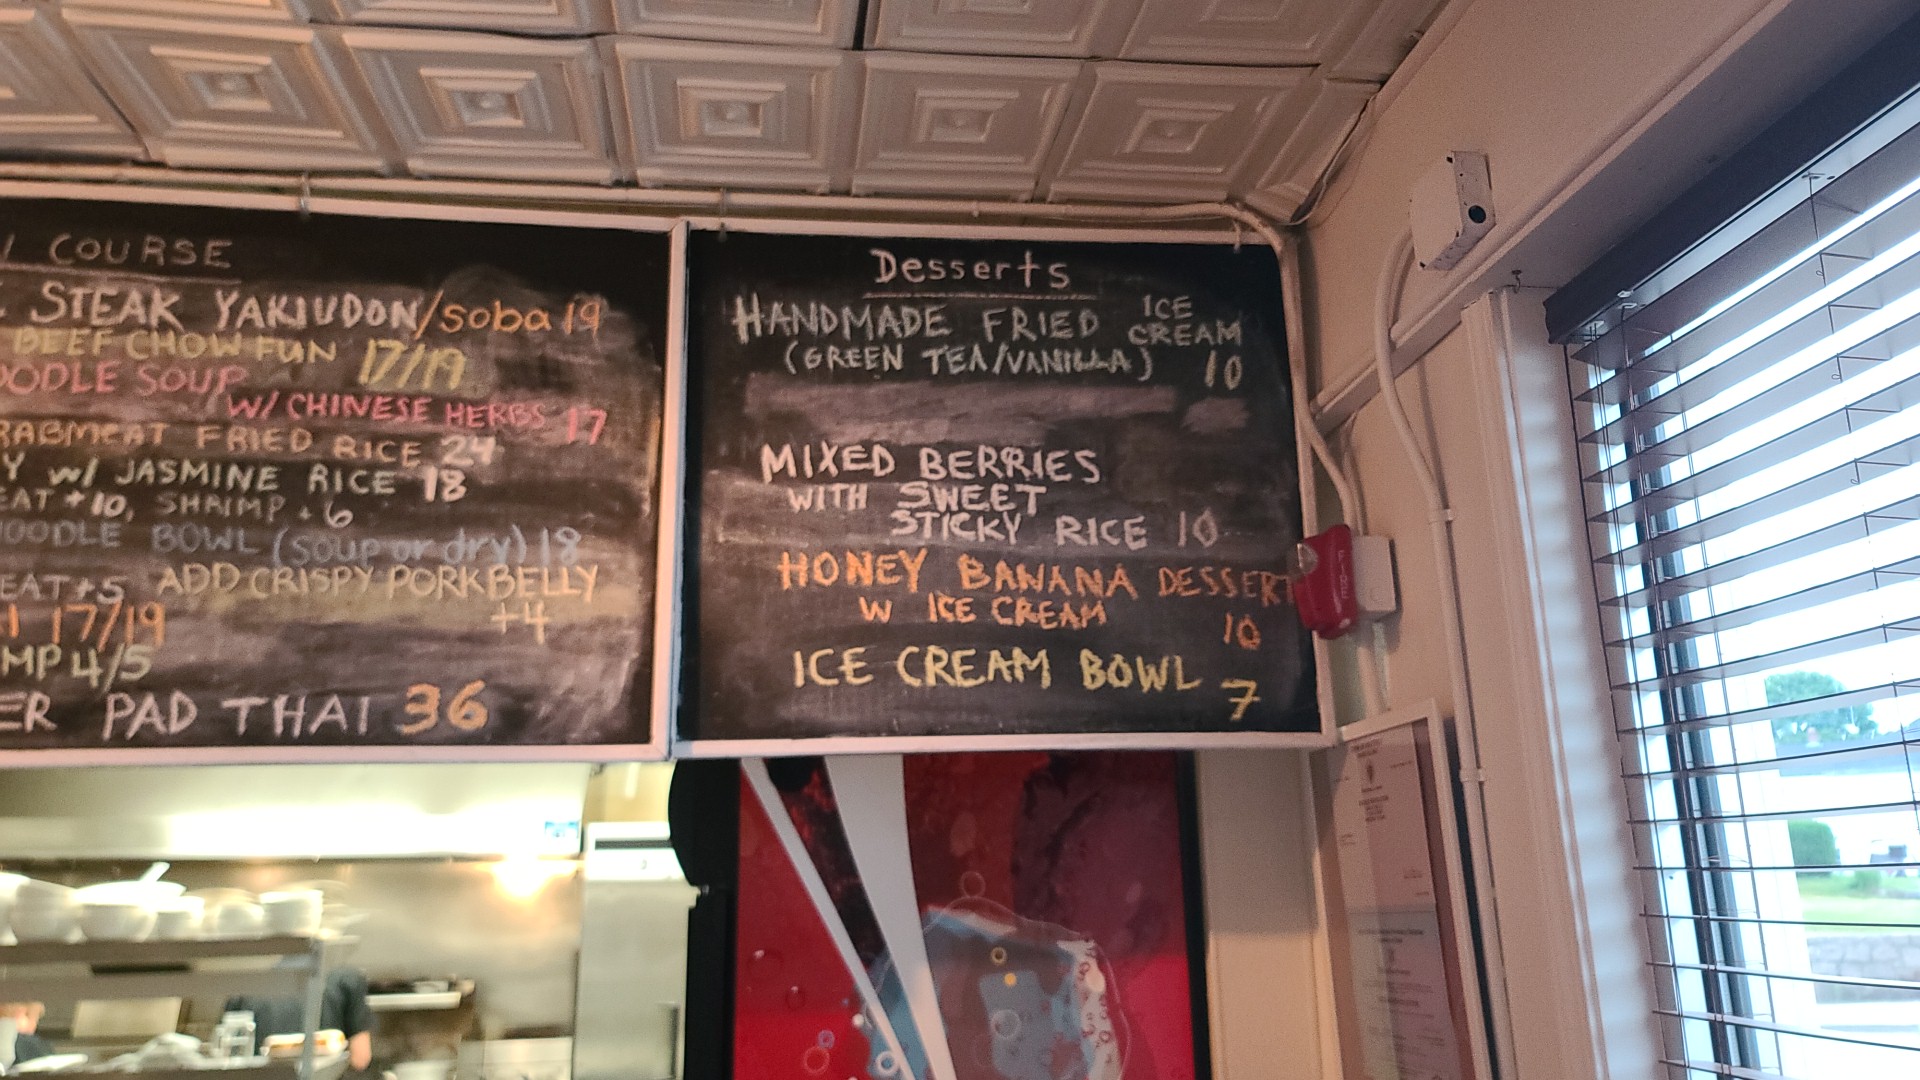 COURSE
STEAK YAKIUDON/soba 19
BEEF CHOW FUN 17/19
OODLE SOUP
W/ CHINESE HERBS 17
RABMEAT FRIED RICE 24
Y W/ JASMINE RICE 18
EAT +10, SHRIMP +6
NOODLE BOWL (soup or dry) 18
EAT +5 ADD CRISPY PORK BELLY
+4
I 17/19
MP 4/5
ER PAD THAI 36
Desserts
HANDMADE FRIED ICE CREAM
(GREEN TEA/VANILLA) 10
MIXED BERRIES
WITH SWEET
STICKY RICE 10
HONEY BANANA DESSERT
W ICE CREAM
10
ICE CREAM BOWL
7
FIRE